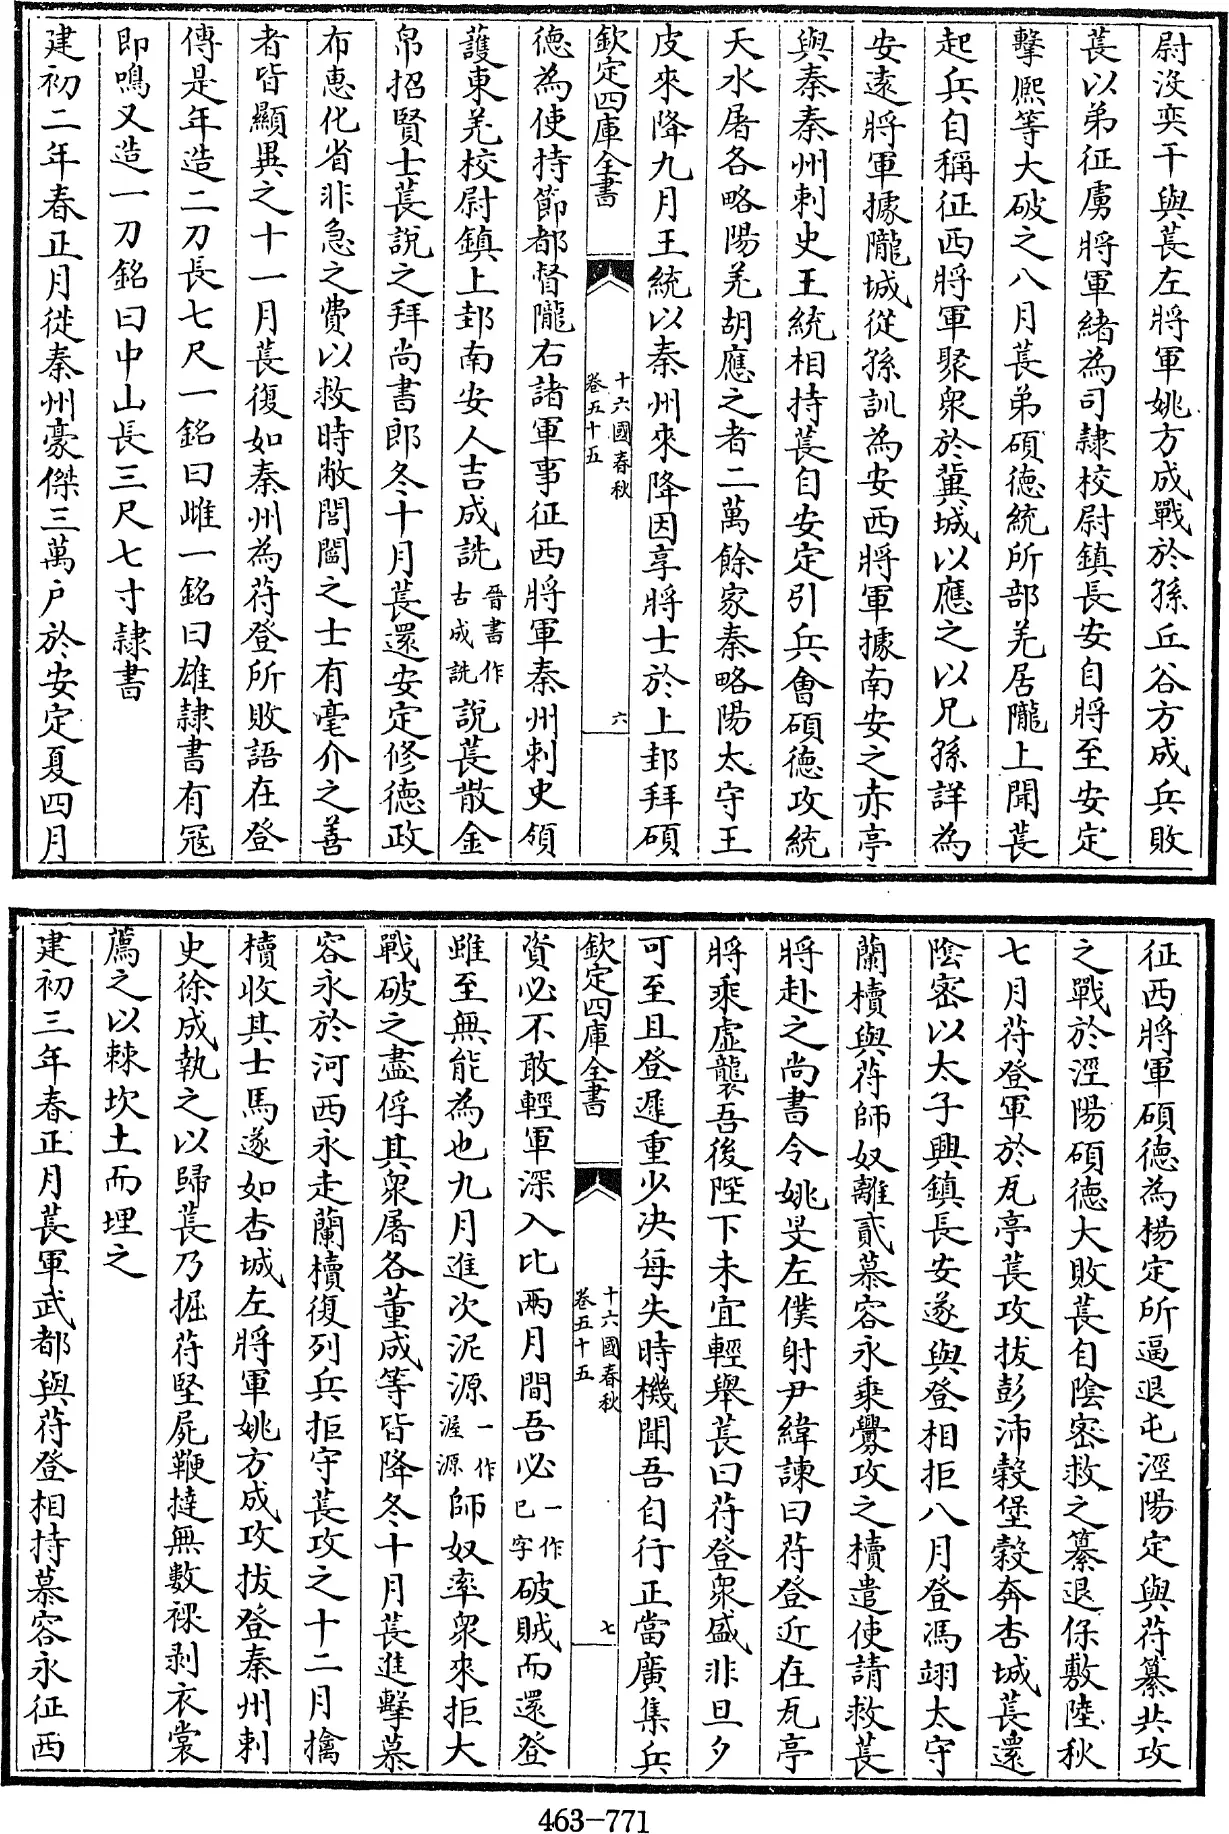 尉沒奕干與萇左將軍姚方成戰於孫丘谷方成兵敗
萇以弟征虜將軍緒為司隸校尉鎮長安自將至安定
擊熙等大破之八月萇弟碩德統所部羌居隴上聞萇
起兵自稱征西將軍聚衆於冀城以應之以兄孫詳為
安遠將軍據隴城從孫訓為安西將軍據南安之赤亭
與秦秦州刺史王統相持萇自安定引兵會碩德攻統
天水屠各略陽羌胡應之者二萬餘家秦略陽太守王
皮來降九月王統以秦州來降因享將士於上邽拜碩
欽定四庫全書
十六國春秋
卷五十五
六
德為使持節都督隴右諸軍事征西將軍秦州刺史領
護東羌校尉鎮上邽南安人吉成詵晉書作古成詵說萇散金
帛招賢士萇說之拜尚書郎冬十月萇還安定修德政
布惠化省非急之費以救時敝閭閻之士有毫介之善
者皆顯異之十一月萇復如秦州為苻登所敗語在登
傳是年造二刀長七尺一銘曰雌一銘曰雄隸書有冦
即鳴又造一刀銘曰中山長三尺七寸隸書
建初二年春正月徙秦州豪傑三萬戶於安定夏四月
征西將軍碩德為楊定所逼退屯涇陽定與苻纂共攻
之戰於涇陽碩德大敗萇自陰密救之纂退保敷陸秋
七月苻登軍於瓦亭萇攻拔彭沛穀堡穀奔杏城萇還
陰密以太子興鎮長安遂與登相拒八月登馮翊太守
蘭櫝與苻師奴離貳慕容永乘釁攻之櫝遣使請救萇
將赴之尚書令姚旻左僕射尹緯諫曰苻登近在瓦亭
將乘虛襲吾後陛下未宜輕舉萇曰苻登衆盛非旦夕
可至且登遲重少決每失時機聞吾自行正當廣集兵
欽定四庫全書
十六國春秋
卷五十五
七
資必不敢輕軍深入比兩月間吾必一作已字破賊而還登
雖至無能為也九月進次泥源一作渥源師奴率衆來拒大
戰破之盡俘其衆屠各董成等皆降冬十月萇進擊慕
容永於河西永走蘭櫝復列兵拒守萇攻之十二月擒
櫝收其士馬遂如杏城左將軍姚方成攻拔登秦州刺
史徐成執之以歸萇乃掘苻堅屍鞭撻無數裸剥衣裳
薦之以棘坎土而埋之
建初三年春正月萇軍武都與苻登相持慕容永征西
463-771